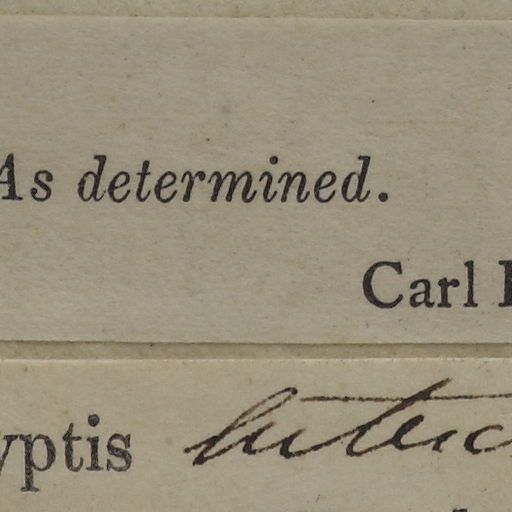 As determined.
Carl
yptis lutea